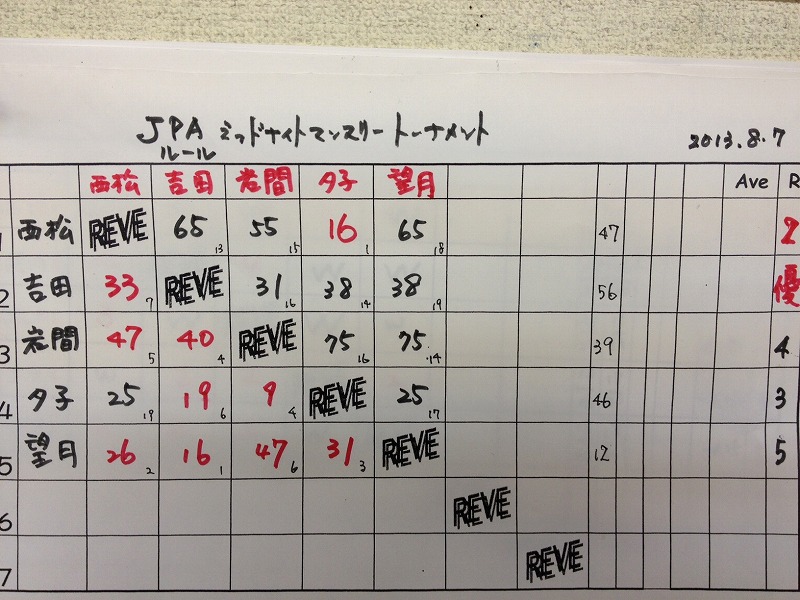 JPA ミッドナイトマンスリートーナメント
ルール
2013.8.7
西松 吉田 岩間 夕子 望月 Ave R
1 西松 REVE 65 13 55 15 16 1 65 18 47 2
2 吉田 33 7 REVE 31 16 38 14 38 19 56 優
3 岩間 47 5 40 4 REVE 75 16 75 14 39 4
4 夕子 25 19 19 6 9 4 REVE 25 17 46 3
5 望月 26 2 16 1 47 6 31 3 REVE 12 5
6 REVE
7 REVE